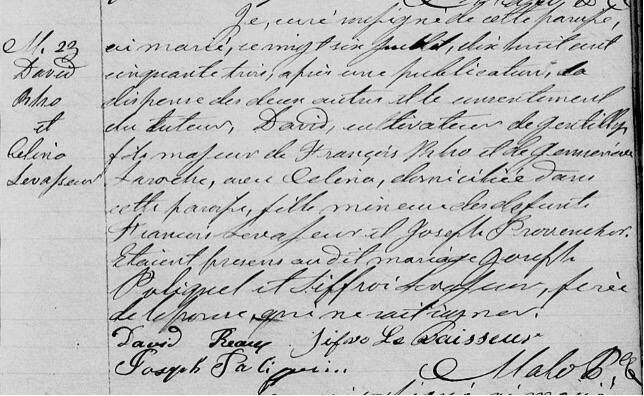 M. 23
David
Rho
et
Celina
Levasseur
Je, curé soussigné de cette paroisse,
ai marié, ce vingt six juillet, dix huit cent
cinquante trois, après une publication, la
dispense des deux autres et le consentement
du tuteur, David, cultivateur de Gentilly,
fils majeur de François Rho et de Geneviève
Laroche, avec Celina, domiciliée dans
cette paroisse, fille mineure des défunts
François Levasseur et Joseph Provencher.
Etaient présens au dit mariage Joseph
Poliquet et Siffroi Levasseur, frère
de l'épouse, qui ne sait signer.
David Reau Sifroi Le Vaisseur
Joseph
Malo Ptre